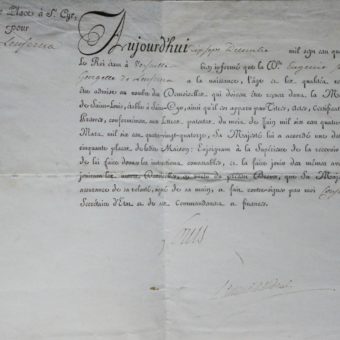 Place à St. Cyr,
pour
Aujourd'hui Decembre mil sept cen
Le Roi étant à Versailles bien informé que la Dlle Eugenie
Georgette de a la naissance, l'âge et les qualités
être admise au nombre des Demoiselles qui doivent être reçues dans la M
de Saint-Louis, établie à Saint-Cyr, ainsi qu'il est apparu par Titres, Actes, Certificat
Preuves, conformément aux Lettres patentes, du mois de Juin mil six cent quatre
Mars, mil six cent quatre-vingt-quatorze, Sa Majesté lui a accordé une des
cinquante places de ladite Maison; Enjoignant à la Supérieure de la recevoir
de lui faire donner les instructions convenables, et la faire jouir des mêmes av
jouissent les autres Demoiselles, en vertu du présent Brevet, que Sa Maj
assurance de sa volonté, signé de sa main, et fait contre-signer par moi
Secrétaire d'Etat et de ses Commandemens et finances.
Louis